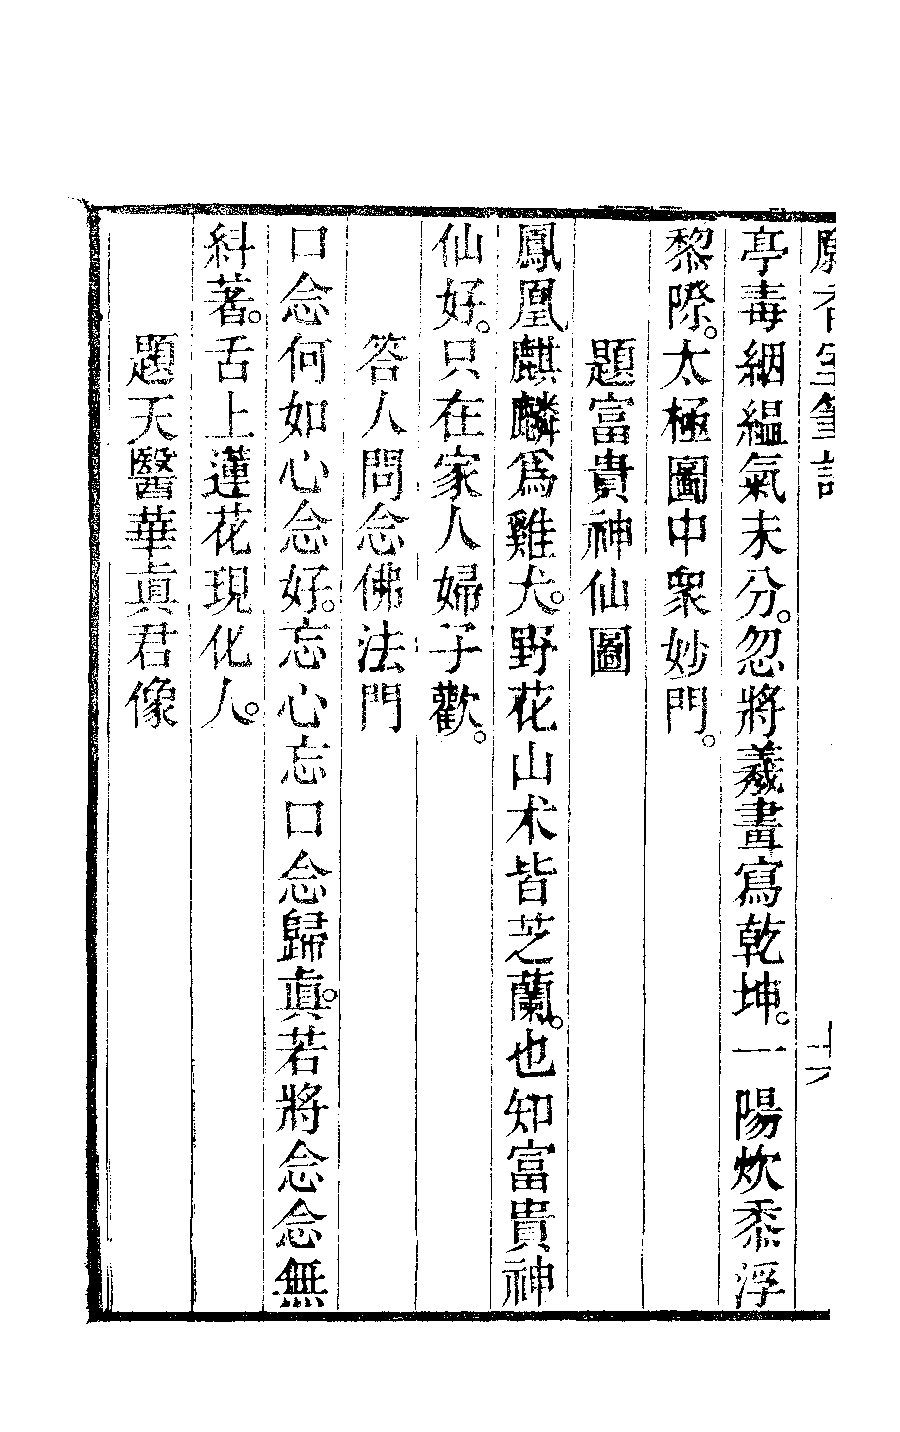 願香室筆記 十六
亭毒絪縕氣未分。忽將羲畫寫乾坤。一陽炊黍浮
黎際。太極圖中衆妙門。
題富貴神仙圖
鳳凰麒麟爲雞犬。野花山术皆芝蘭。也知富貴神
仙好。只在家人婦子歡。
答人問念佛法門
口念何如心念好。忘心忘口念歸眞。若將念念無
紏著。舌上蓮花現化人。
題天醫華眞君像